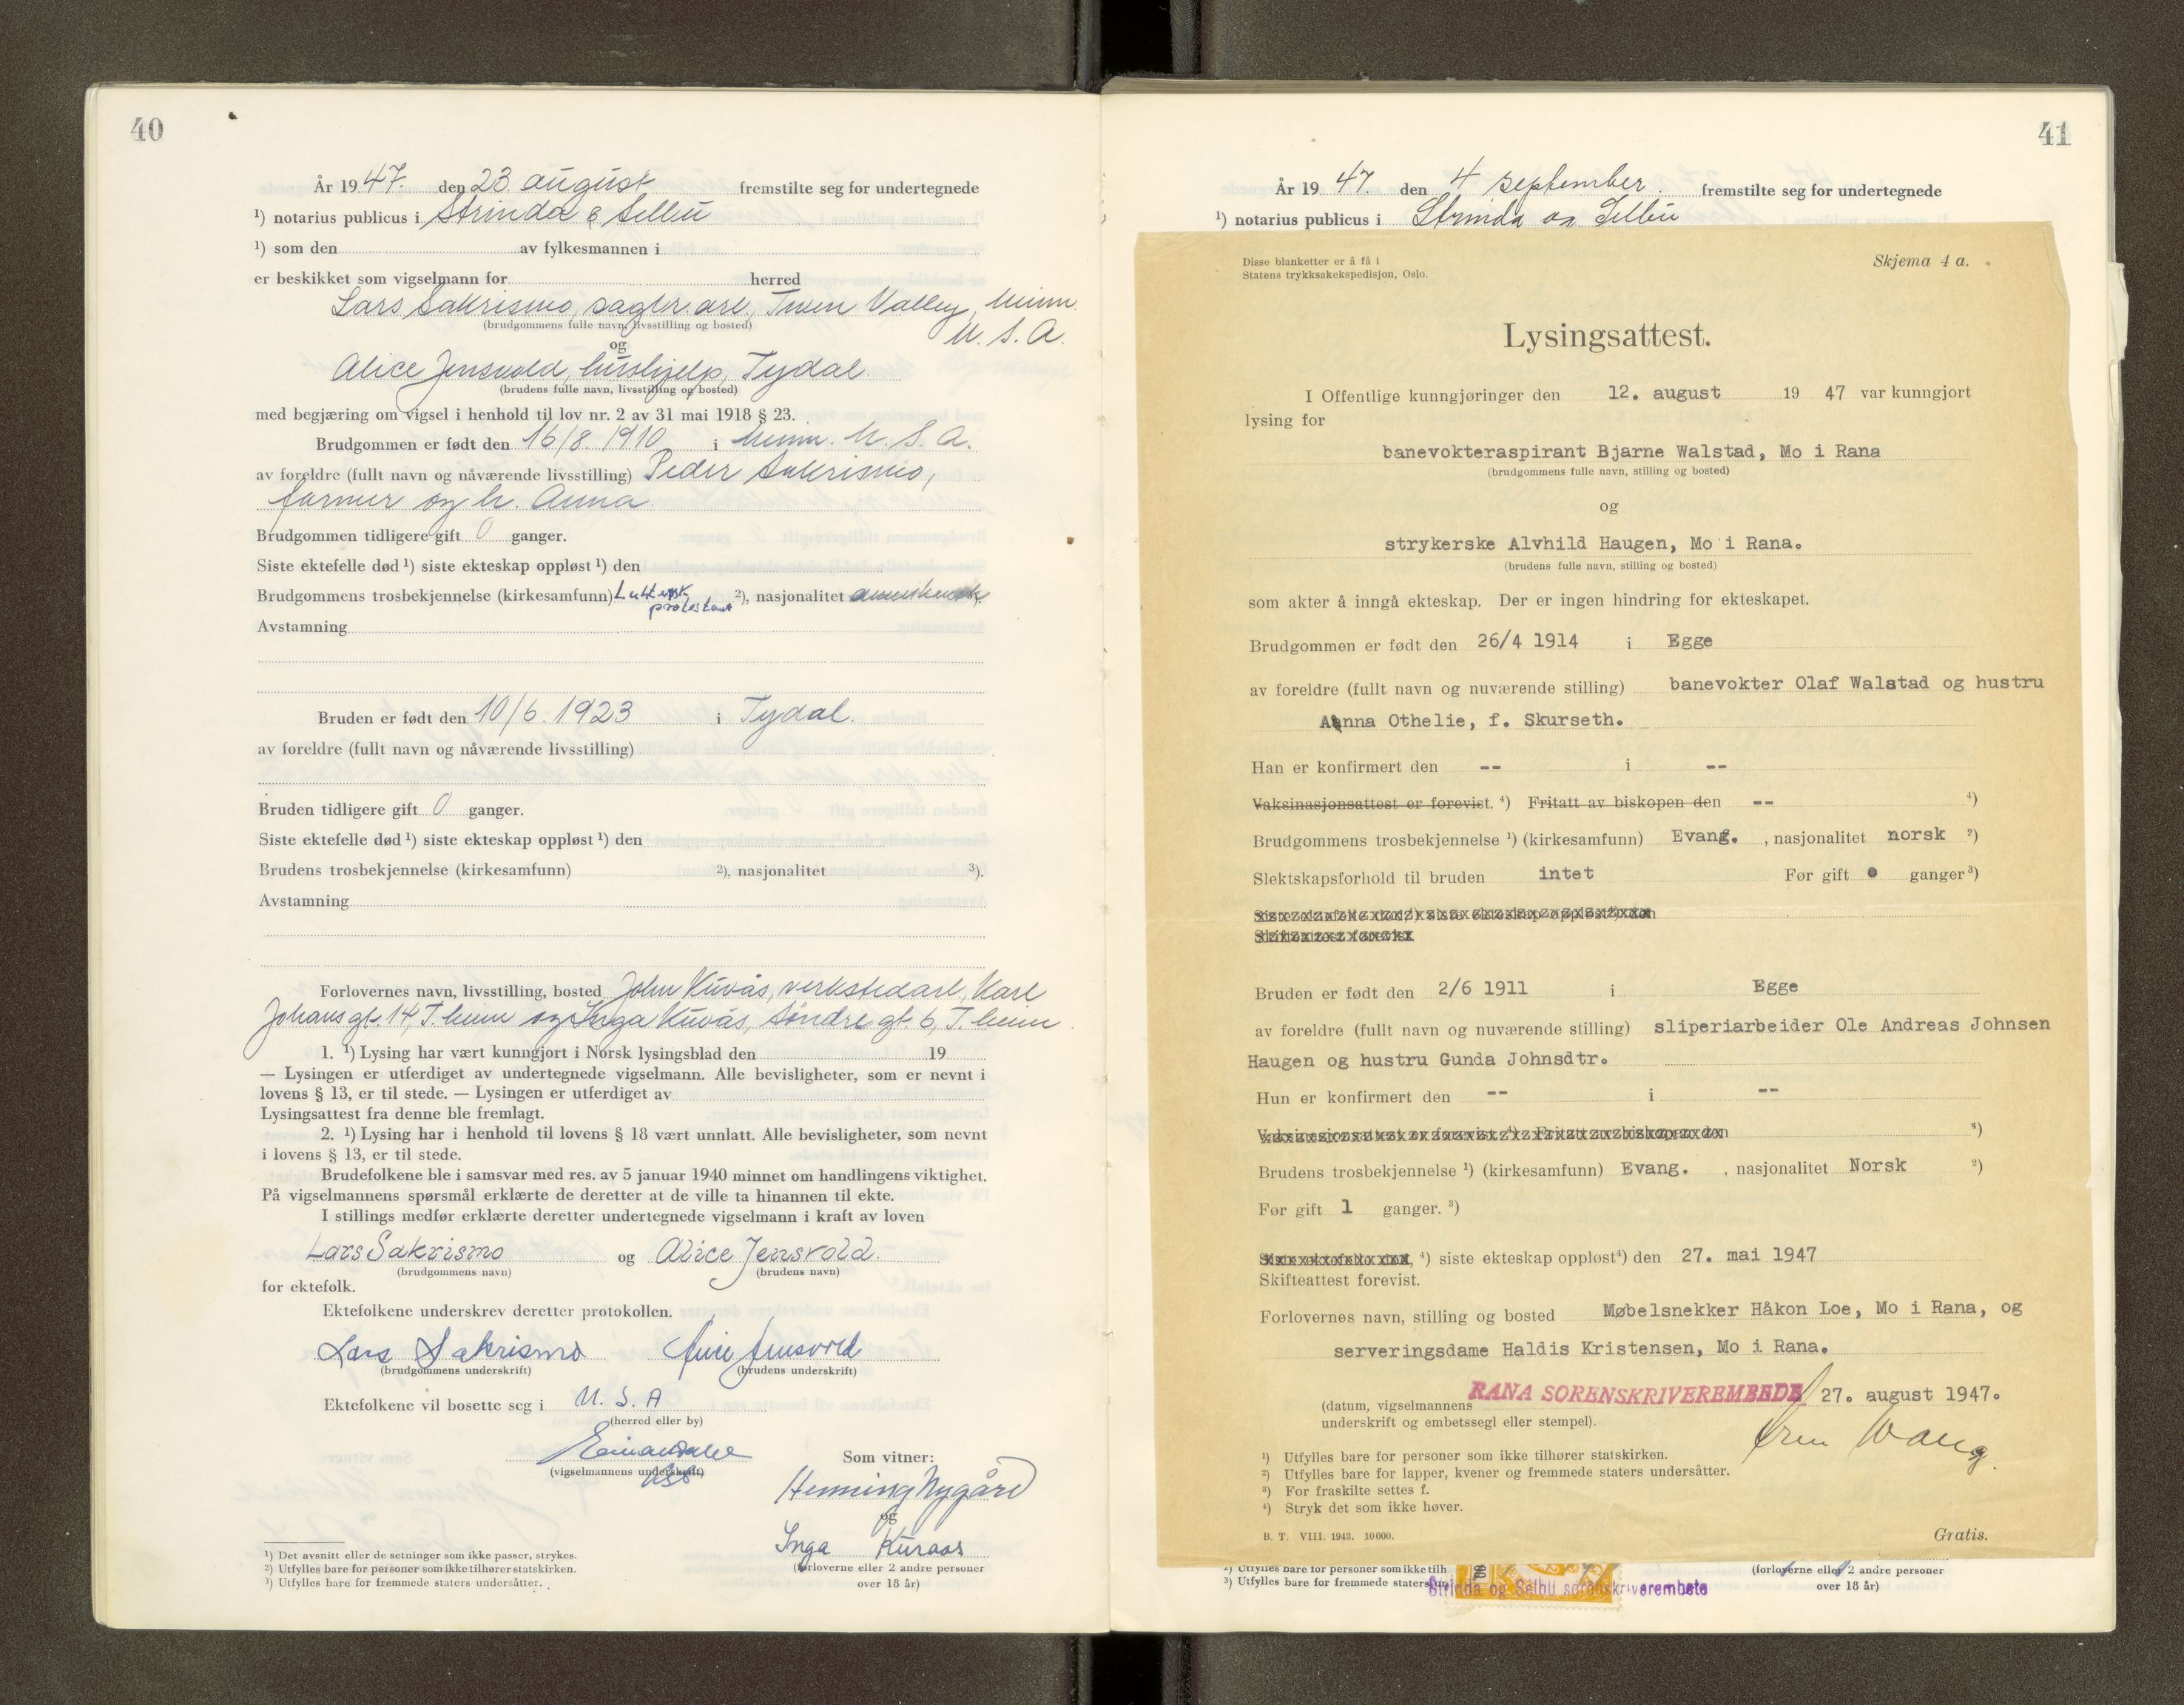 40
År 1947. den 23 august fremstilte seg for undertegnede
¹) notarius publicus i Strinda & Selbu
¹) som den av fylkesmannen i
er beskikket som vigselmann for herred
Lars Sakrismo, sagbr.arb., Twin Valley, Minn.
(brudgommens fulle navn, livsstilling og bosted)
U. S. A.
og
Alice Jensvold, hushjelp, Tydal.
(brudens fulle navn, livsstilling og bosted)
med begjæring om vigsel i henhold til lov nr. 2 av 31 mai 1918 § 23.
Brudgommen er født den 16/8. 1910 i Minn. U. S. A.
av foreldre (fullt navn og nåværende livsstilling) Peder Sakrismo,
farmer og h. Anna.
Brudgommen tidligere gift 0 ganger.
Siste ektefelle død ¹) siste ekteskap oppløst ¹) den
Brudgommens trosbekjennelse (kirkesamfunn) Luthersk
protestant ²), nasjonalitet amerikansk
Avstamning
Bruden er født den 10/6. 1923 i Tydal.
av foreldre (fullt navn og nåværende livsstilling)
Bruden tidligere gift 0 ganger.
Siste ektefelle død ¹) siste ekteskap oppløst ¹) den
Brudens trosbekjennelse (kirkesamfunn) ²), nasjonalitet ³).
Avstamning
Forlovernes navn, livsstilling, bosted John Kuvås, verkstedarb., Karl
Johansgt. 14, T.heim og Inga Kuvås, Søndre gt. 6, T.heim.
1. ¹) Lysing har vært kunngjort i Norsk lysingsblad den 19
— Lysingen er utferdiget av undertegnede vigselmann. Alle bevisligheter, som er nevnt i
lovens § 13, er til stede. — Lysingen er utferdiget av
Lysingsattest fra denne ble fremlagt.
2. ¹) Lysing har i henhold til lovens § 18 vært unnlatt. Alle bevisligheter, som nevnt
i lovens § 13, er til stede.
Brudefolkene ble i samsvar med res. av 5 januar 1940 minnet om handlingens viktighet.
På vigselmannens spørsmål erklærte de deretter at de ville ta hinannen til ekte.
I stillings medfør erklærte deretter undertegnede vigselmann i kraft av loven
Lars Sakrismo og Alice Jensvold.
(brudgommens navn) (brudens navn)
for ektefolk.
Ektefolkene underskrev deretter protokollen.
Lars Sakrismo Alice Jensvold
(brudgommens underskrift) (brudens underskrift)
Ektefolkene vil bosette seg i U. S. A
(herred eller by)
Som vitner:
(vigselmannens underskrift)
Henning Nygård
og
Inga Kuraas
(forloverne eller 2 andre personer
over 18 år)
¹) Det avsnitt eller de setninger som ikke passer, strykes.
²) Utfylles bare for personer som ikke tilhører statskirken.
³) Utfylles bare for fremmede staters undersåtter.
41
År 1947. den 4 september. fremstilte seg for undertegnede
¹) notarius publicus i Strinda og Selbu
Disse blanketter er å få i
Statens trykksakekspedisjon, Oslo.
Skjema 4 a.
Lysingsattest.
I Offentlige kunngjøringer den 12. august 19 47 var kunngjort
lysing for
banevokteraspirant Bjarne Walstad, Mo i Rana
(brudgommens fulle navn, stilling og bosted)
og
strykerske Alvhild Haugen, Mo i Rana.
(brudens fulle navn, stilling og bosted)
som akter å inngå ekteskap. Der er ingen hindring for ekteskapet.
Brudgommen er født den 26/4 1914 i Egge
av foreldre (fullt navn og nuværende stilling) banevokter Olaf Walstad og hustru
Anna Othelie, f. Skurseth.
Han er konfirmert den -- i --
Vaksinasjonsattest er forevist. ⁴) Fritatt av biskopen den -- ⁴)
Brudgommens trosbekjennelse ¹) (kirkesamfunn) Evang. , nasjonalitet norsk ²)
Slektskapsforhold til bruden intet Før gift 0 ganger ³)
Bruden er født den 2/6 1911 i Egge
av foreldre (fullt navn og nuværende stilling) sliperiarbeider Ole Andreas Johnsen
Haugen og hustru Gunda Johnsdtr.
Hun er konfirmert den -- i --
⁴)
Brudens trosbekjennelse ¹) (kirkesamfunn) Evang. , nasjonalitet Norsk ²)
Før gift 1 ganger. ³)
⁴) siste ekteskap oppløst ⁴) den 27. mai 1947
Skifteattest forevist.
Forlovernes navn, stilling og bosted Møbelsnekker Håkon Loe, Mo i Rana, og
serveringsdame Haldis Kristensen, Mo i Rana.
RANA SORENSKRIVEREMBEDE 27. august 1947.
(datum, vigselmannens
underskrift og embetssegl eller stempel).
Wang
¹) Utfylles bare for personer som ikke tilhører statskirken.
²) Utfylles bare for lapper, kvener og fremmede staters undersåtter.
³) For fraskilte settes f.
⁴) Stryk det som ikke høver.
B. T. VIII. 1943. 10 000.
Gratis.
²) Utfylles bare for personer som ikke tilh
³) Utfylles bare for fremmede staters
Strinda og Selbu sorenskriverembete
(forloverne eller 2 andre personer
over 18 år)